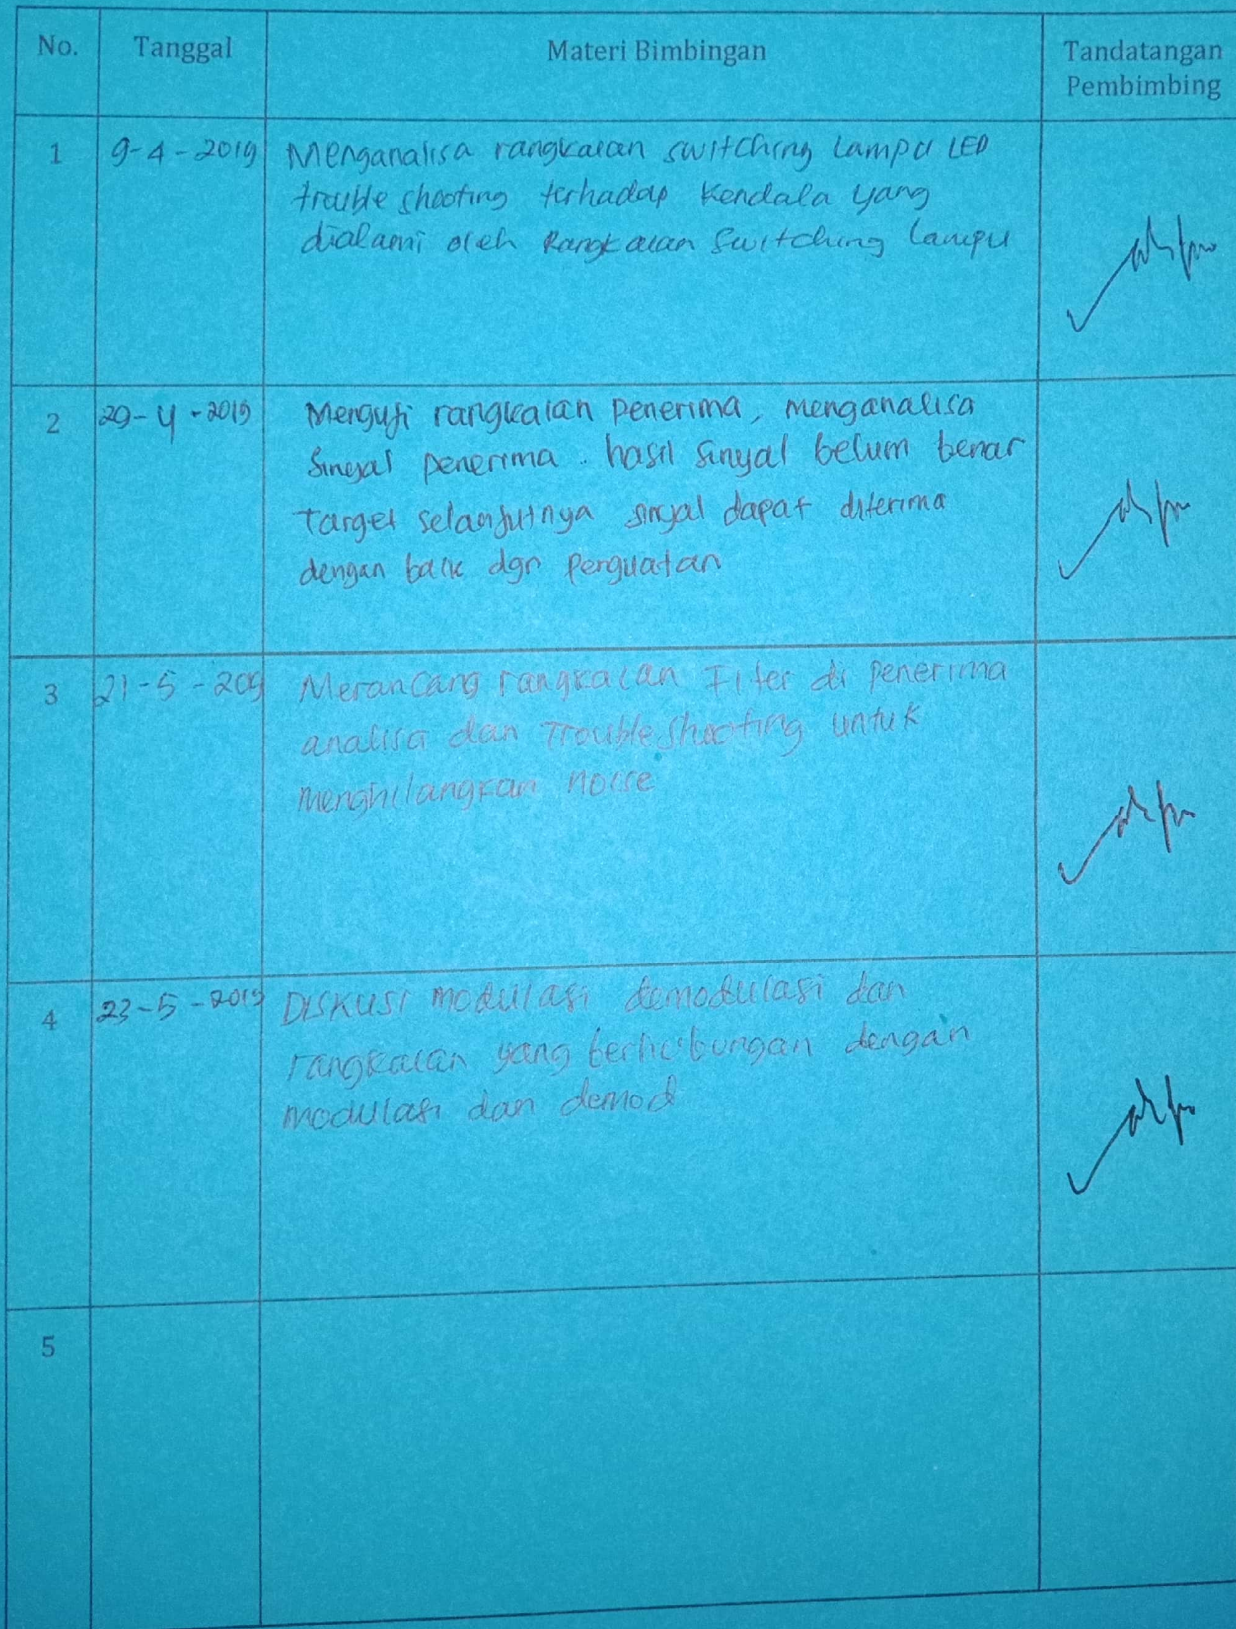 No. Tanggal Materi Bimbingan Tandatangan
Pembimbing
1 9-4-2019 Menganalisa rangkaian switching lampu LED
trouble shooting terhadap kendala yang
dialami oleh Rangkaian Switching lampu
2 29-4-2019 Menguji rangkaian penerima, menganalisa
Sinyal penerima. hasil sinyal belum benar
target selanjutnya sinyal dapat diterima
dengan baik dgn penguatan
3 21-5-209 Merancang rangkaian Filter di penerima
analisa dan Trouble Shooting untuk
menghilangkan noise
4 23-5-2019 Diskusi modulasi demodulasi dan
rangkaian yang berhubungan dengan
modulasi dan demod
5